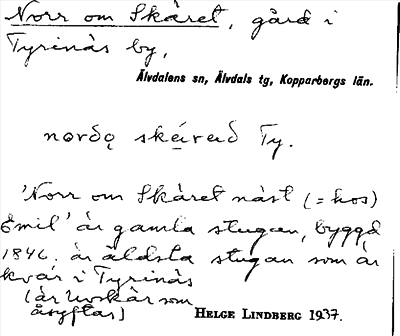 Norr om Skåret, gård i
Tyrinäs by,
Älvdalens sn, Älvdals tg, Kopparbergs län.
nordǫ skárad Ty.
'Norr om Skåret näst (= hos)
Emil' är gamla stugan, byggd
1846. är äldsta stugan som är
kvar i Tyrinäs
(är som
åsyftas)
HELGE LINDBERG 1937.